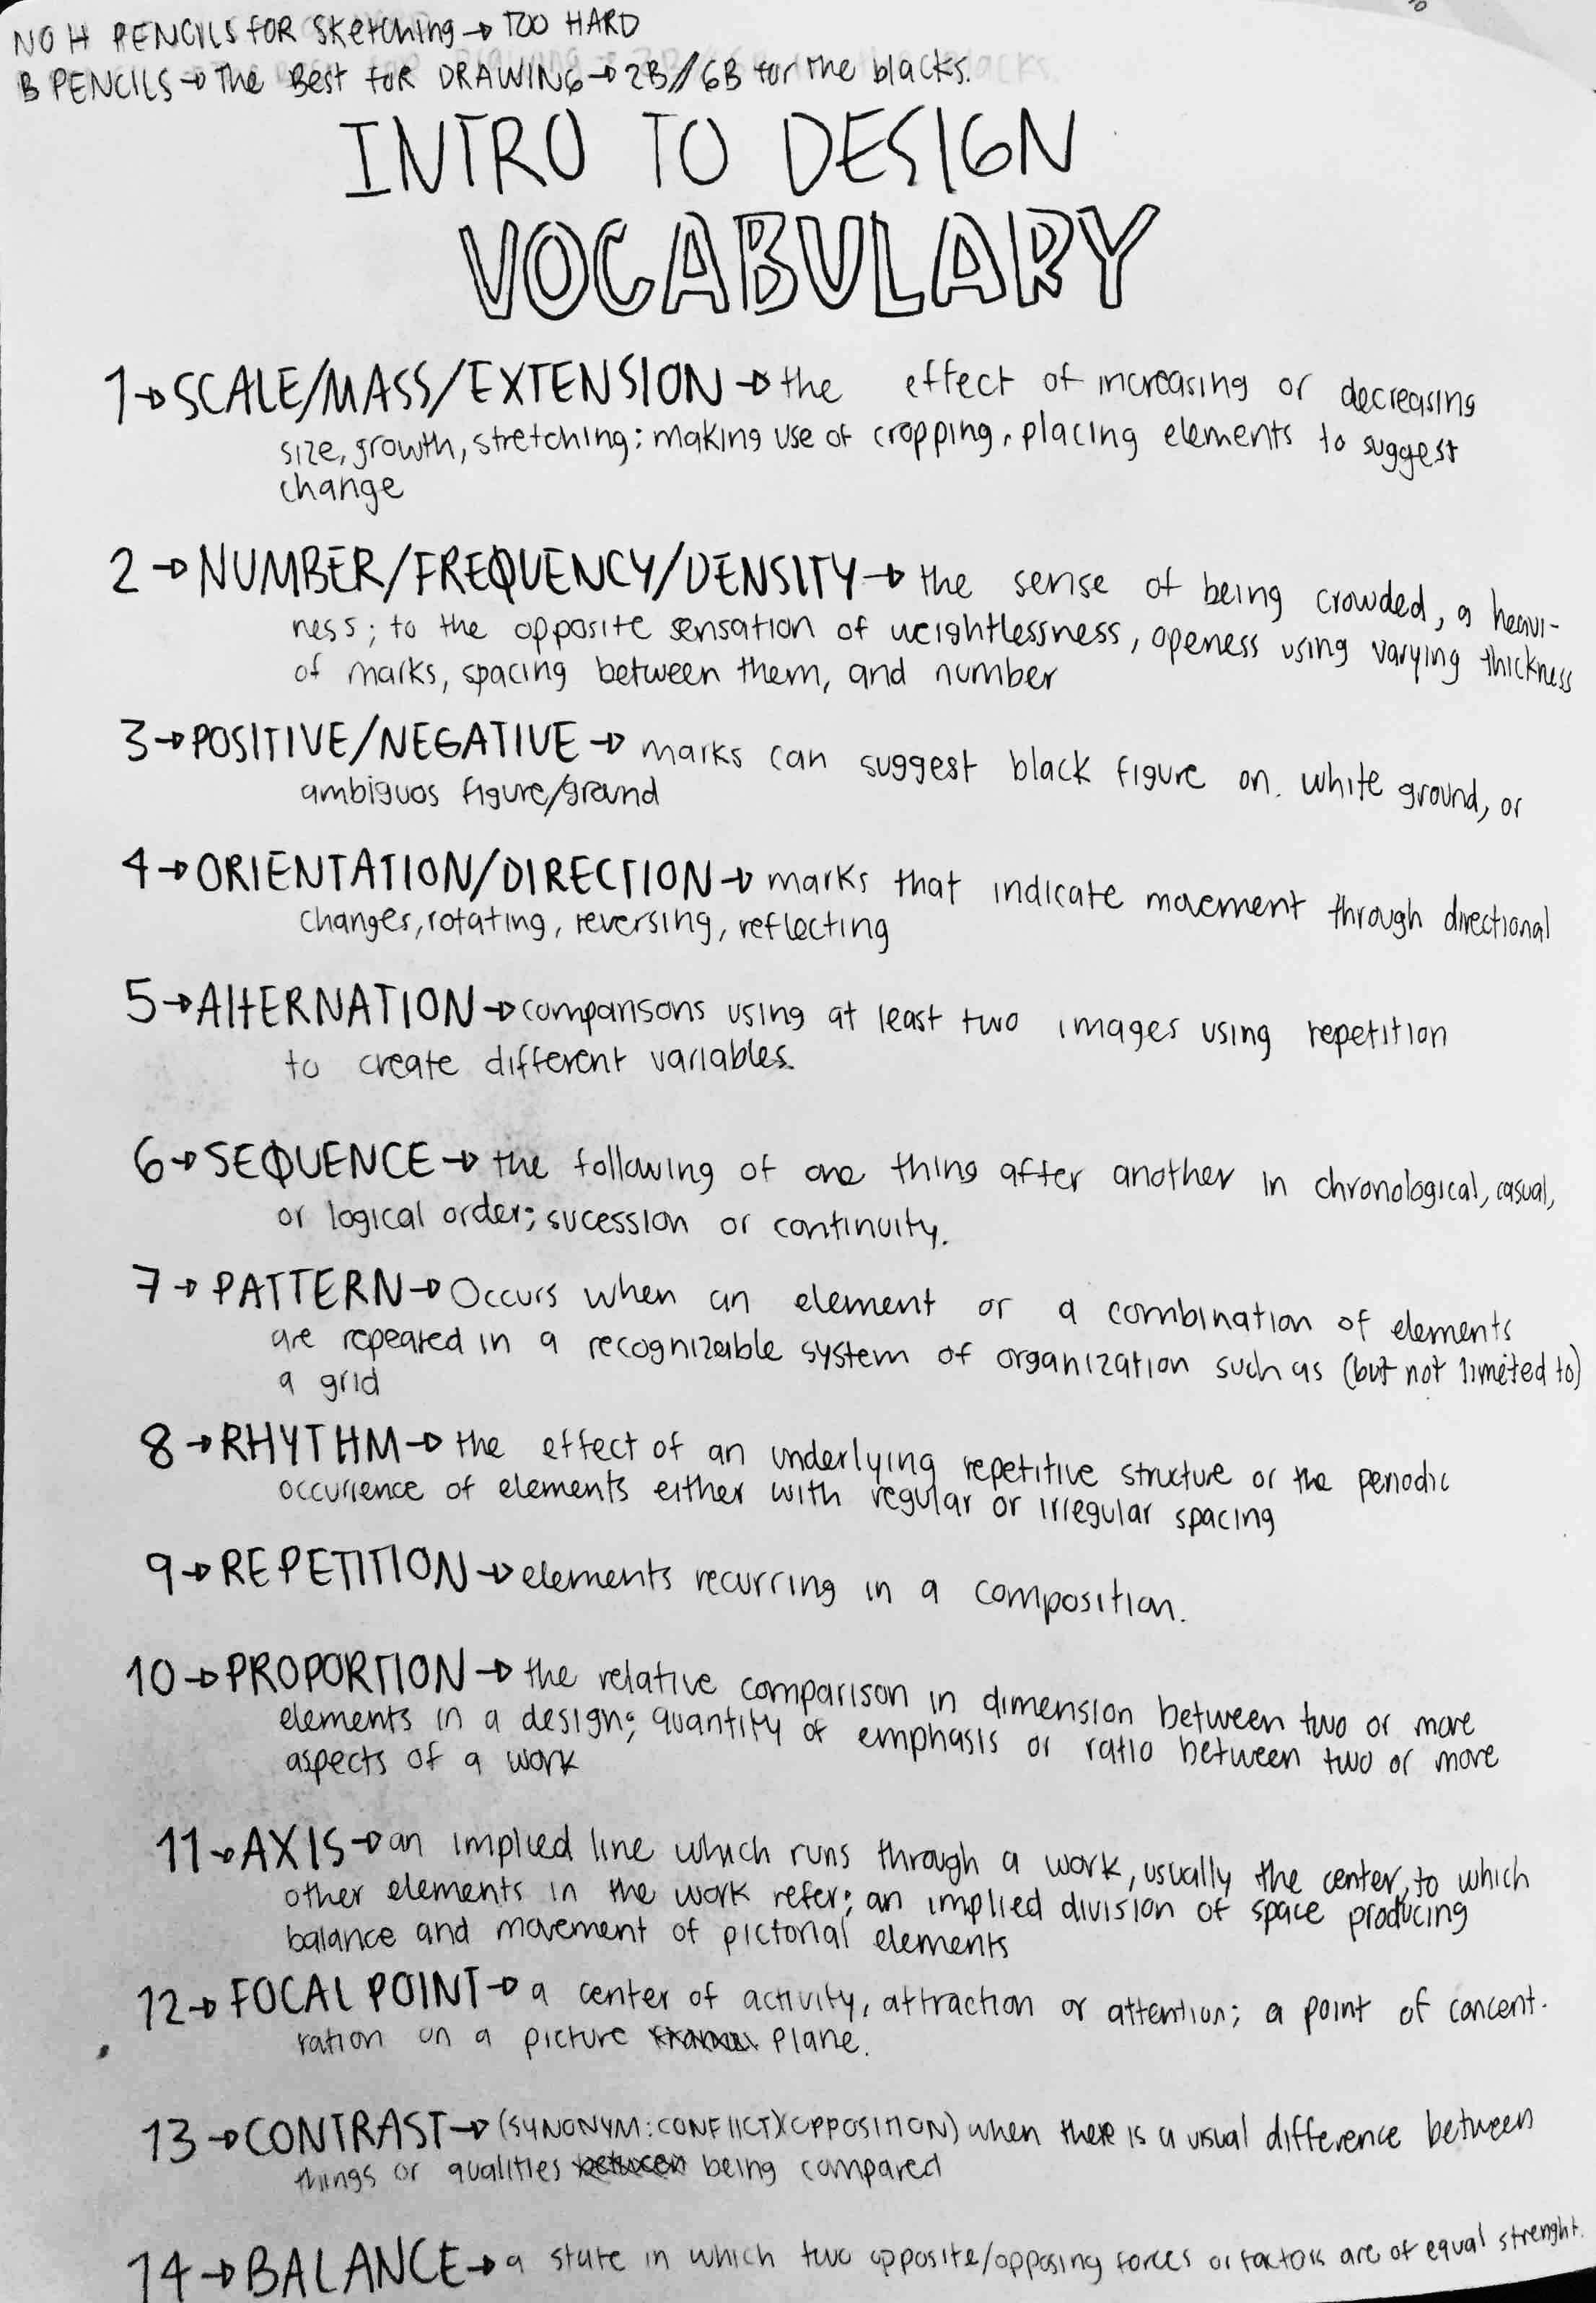 NO H PENCILS FOR Sketching → TOO HARD
B PENCILS → The Best for DRAWING → 2B//6B for the blacks.
INTRO TO DESIGN
VOCABULARY
1→SCALE/MASS/EXTENSION → the effect of increasing or decreasing
size, growth, stretching; making use of cropping, placing elements to suggest
change
2→NUMBER/FREQUENCY/DENSITY → the sense of being crowded, a heavi-
ness; to the opposite sensation of weightlessness, openess using varying thickness
of marks, spacing between them, and number
3→POSITIVE/NEGATIVE → marks can suggest black figure on. white ground, or
ambiguos figure/ground
4→ORIENTATION/DIRECTION → marks that indicate movement through directional
changes, rotating, reversing, reflecting
5→AltERNATION → comparisons using at least two images using repetition
to create different variables.
6→SEQUENCE → the following of one thing after another in chronological, casual,
or logical order; sucession or continuity.
7→PATTERN → Occurs when an element or a combination of elements
are repeated in a recognizable system of organization such as (but not limited to)
a grid
8→RHYTHM → the effect of an underlying repetitive structure or the periodic
occurrence of elements either with regular or irregular spacing
9→REPETITION → elements recurring in a composition.
10→PROPORTION → the relative comparison in dimension between two or more
elements in a design; quantity of emphasis or ratio between two or more
aspects of a work
11→AXIS → an implied line which runs through a work, usually the center, to which
other elements in the work refer; an implied division of space producing
balance and movement of pictorial elements
12→FOCAL POINT → a center of activity, attraction or attention; a point of concent-
ration on a picture plane.
13→CONTRAST → (SYNONYM: CONFlICT)(OPPOSITION) when there is a visual difference between
things or qualities between being compared
14→BALANCE → a state in which two opposite/opposing forces or factors are of equal strenght.